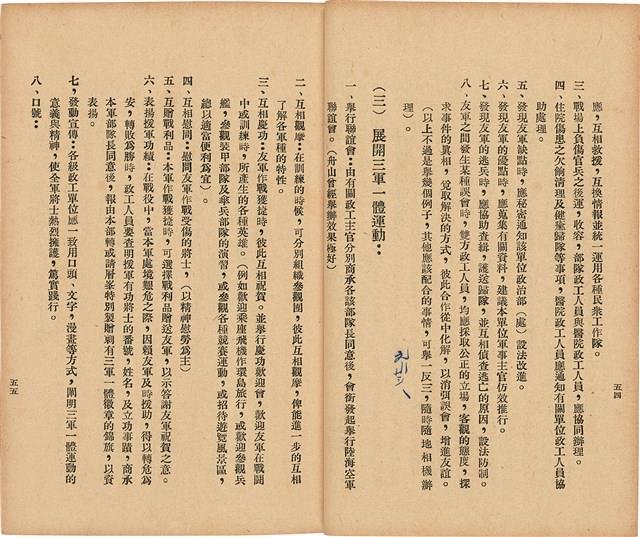 應，互相救援，互換情報並統一運用各種民衆工作隊。
三、戰場上負傷官兵之後運，收容，部隊政工人員與醫院政工人員，應協同辦理。
四、住院傷患之欠餉清理及健癒歸隊等事項，醫院政工人員應通知有關單位政工人員協
助處理。
五、發現友軍缺點時，應秘密通知該單位政治部（處）設法改進。
六、發現友軍的優點時，應蒐集有關資料，建議本單位軍事主官仿效推行。
七、發現友軍的逃兵時，應協助查緝，護送歸隊，並互相偵查逃亡的原因，設法防制。
八、友軍之間發生某種誤會時，雙方政工人員，均應採取公正的立場，客觀的態度，探
求事件的眞相，覓取解決的方式，彼此合作從中化解，以消弭誤會，增進友誼。
（以上不過是舉幾個例子，其他應該配合的事情，可舉一反三，隨時隨地相機辦
理）。
（三）　展開三軍一體運動：
一、舉行聯誼會：由有關政工主官分別商承各該部隊長同意後，會銜發起舉行陸海空軍
聯誼會。（舟山曾經舉辦效果極好）
五四
二、互相觀摩：在訓練的時候，可分別組織參觀團，彼此互相觀摩，俾能進一步的互相
了解各軍種的特性。
三、互相慶功：友軍作戰獲捷時，彼此互相祝賀。並舉行慶功歡迎會，歡迎友軍在戰鬪
中或訓練時，所產生的各種英雄。（例如歡迎乘座飛機作環島旅行，或歡迎參觀兵
艦，參觀裝甲部隊及傘兵部隊的演習，或參觀各種競賽運動，或招待遊覽風景區，
總以適當便利爲宜）。
四、互相慰問：慰問友軍作戰受傷的將士，（以精神慰勞爲主）
五、互贈戰利品：本軍作戰獲捷時，可選擇戰利品贈送友軍，以示答謝友軍祝賀之意。
六、表揚援軍功績：在戰役中，當本軍處境艱危之際，因賴友軍及時援助，得以轉危爲
安，轉敗爲勝時，政工人員要查明援軍有功將士的番號，姓名，及立功事蹟，商承
本軍部隊長同意後，報由本部轉或請層峯特別製贈剌有三軍一體徽章的錦旗，以資
表揚。
七、發動宣傳：各級政工單位應一致用口頭、文字，漫畫等方式，闡明三軍一體運動的
意義與精神，使全軍將士熱烈擁護，篤實踐行。
八、口號：
五五